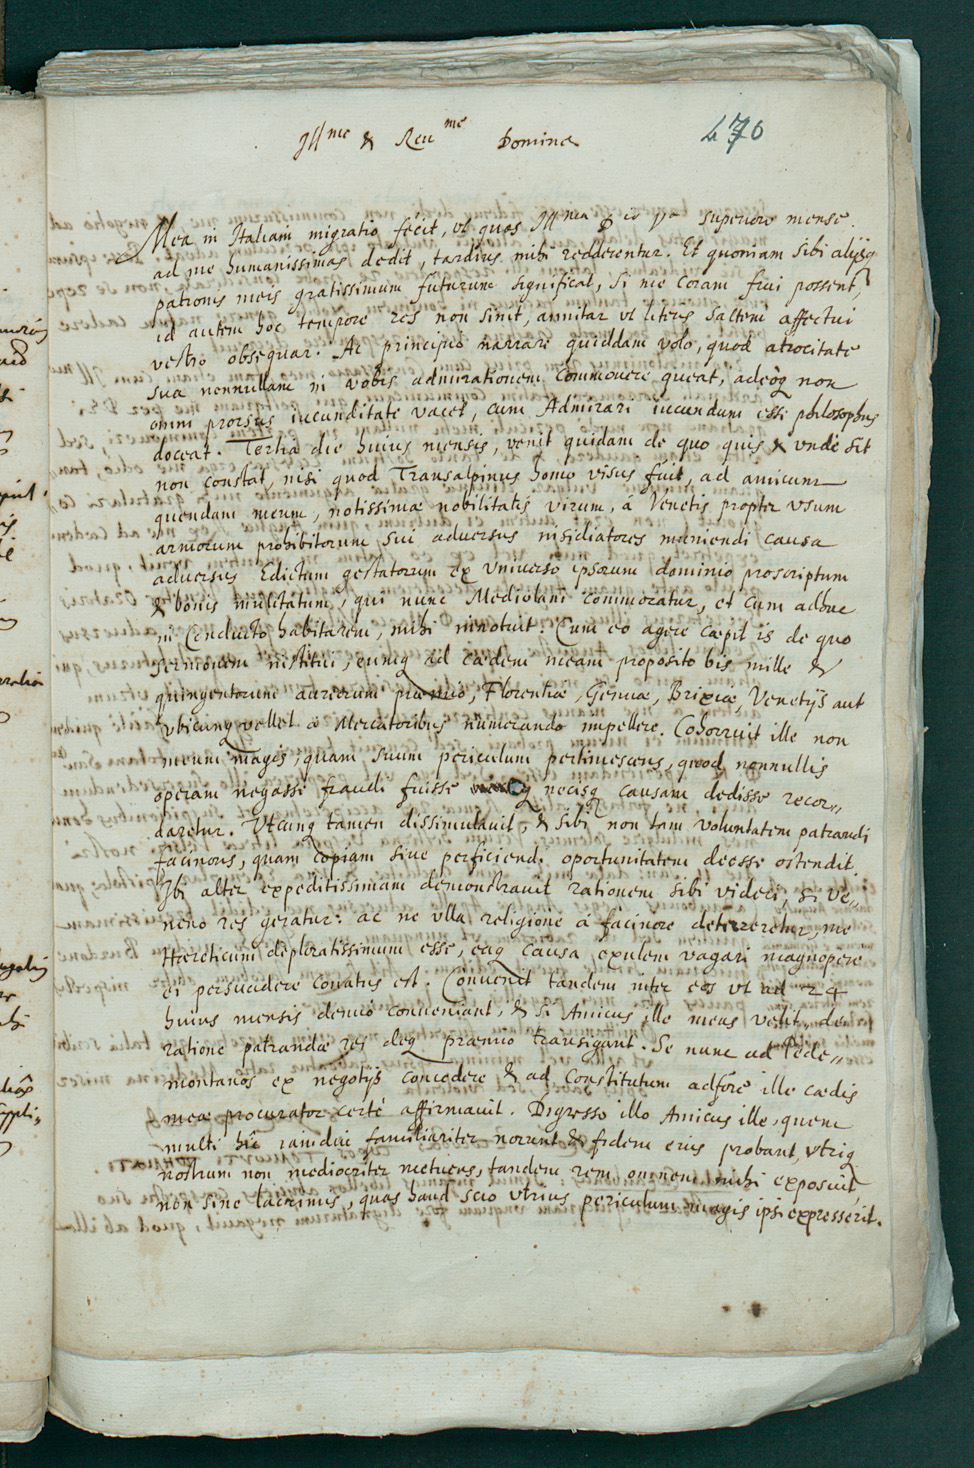 Ill^me & Reu^me Domine
470
Mea in Italiam migratio fecit, vt quas Ill^ma superiore mense
ad me humanissimas dedit, tardius mihi redderentur. Et quoniam sibi alijsq
patronis meis gratissimum futurum significat, si me coram frui possent,
id autem hoc tempore res non sinit, annitar vt literis saltem affectui
vestro obsequar. Ac principio narrare quiddam volo, quod atrocitate
sua nonnullam in vobis admirationem commouere queat, adeoq non
omni prorsus iucunditate vacet, cum Admirari iucundum esse philosophus
doceat. Tertia die huius mensis, venit quidam de quo quis & vnde sit
non constat, nisi quod Transalpinus homo visus fuit, ad amicum
quendam meum, notissimæ nobilitatis virum, a Venetis propter vsum
armorum prohibitorum sui aduersus insidiatores muniendi causa
aduersus Edictum gestatorum ex vniuerso ipsorum dominio proscriptum
& bonis mulctatum, qui nunc Mediolani commoratur, et cum adhuc
in Conducto habitarem, mihi innotuit. Cum eo agere cæpit is de quo
sermonem institui, eumq ad cædem meam proposito bis mille &
quingentorum aureorum præmio, Florentiæ, Genuæ, Brixiæ, Venetijs aut
vbicunq vellet a Mercatoribus numerando impellere. Cohorruit ille non
meum magis, quam suum periculum pertimescens, quod nonnullis
operam negasse fraudi fuisse necisq causam dedisse recor„
daretur. Vtcunq tamen dissimulauit, & sibi non tam voluntatem patrandi
facinoris, quam copiam siue perficiendi oportunitatem deesse ostendit.
Ibi alter expeditissimam demonstrauit rationem sibi videri, si ve„
neno res geratur: ac ne vlla religione a facinore deterreretur, me
Hæreticum deploratissimum esse, eaq causa exulem vagari magnopere
ei persuadere conatus est. Conuenit tandem inter eos vt ad 24
huius mensis denuo conueniant, & si Amicus ille meus velit, de
ratione patrandæ rei deq præmio transigant. Se nunc ad Pede„
montanos ex negotijs concedere & ad constitutum adfore ille cædis
meæ procurator certè affirmauit. Digresso illo Amicus ille, quem
multi hic iamdiu familiariter norunt & fidem eius probant, vtriq
nostrum non mediocriter metuens, tandem rem omnem mihi exposuit
non sine lacrimis, quas haud scio vtrius periculum magis ipsi expresserit.